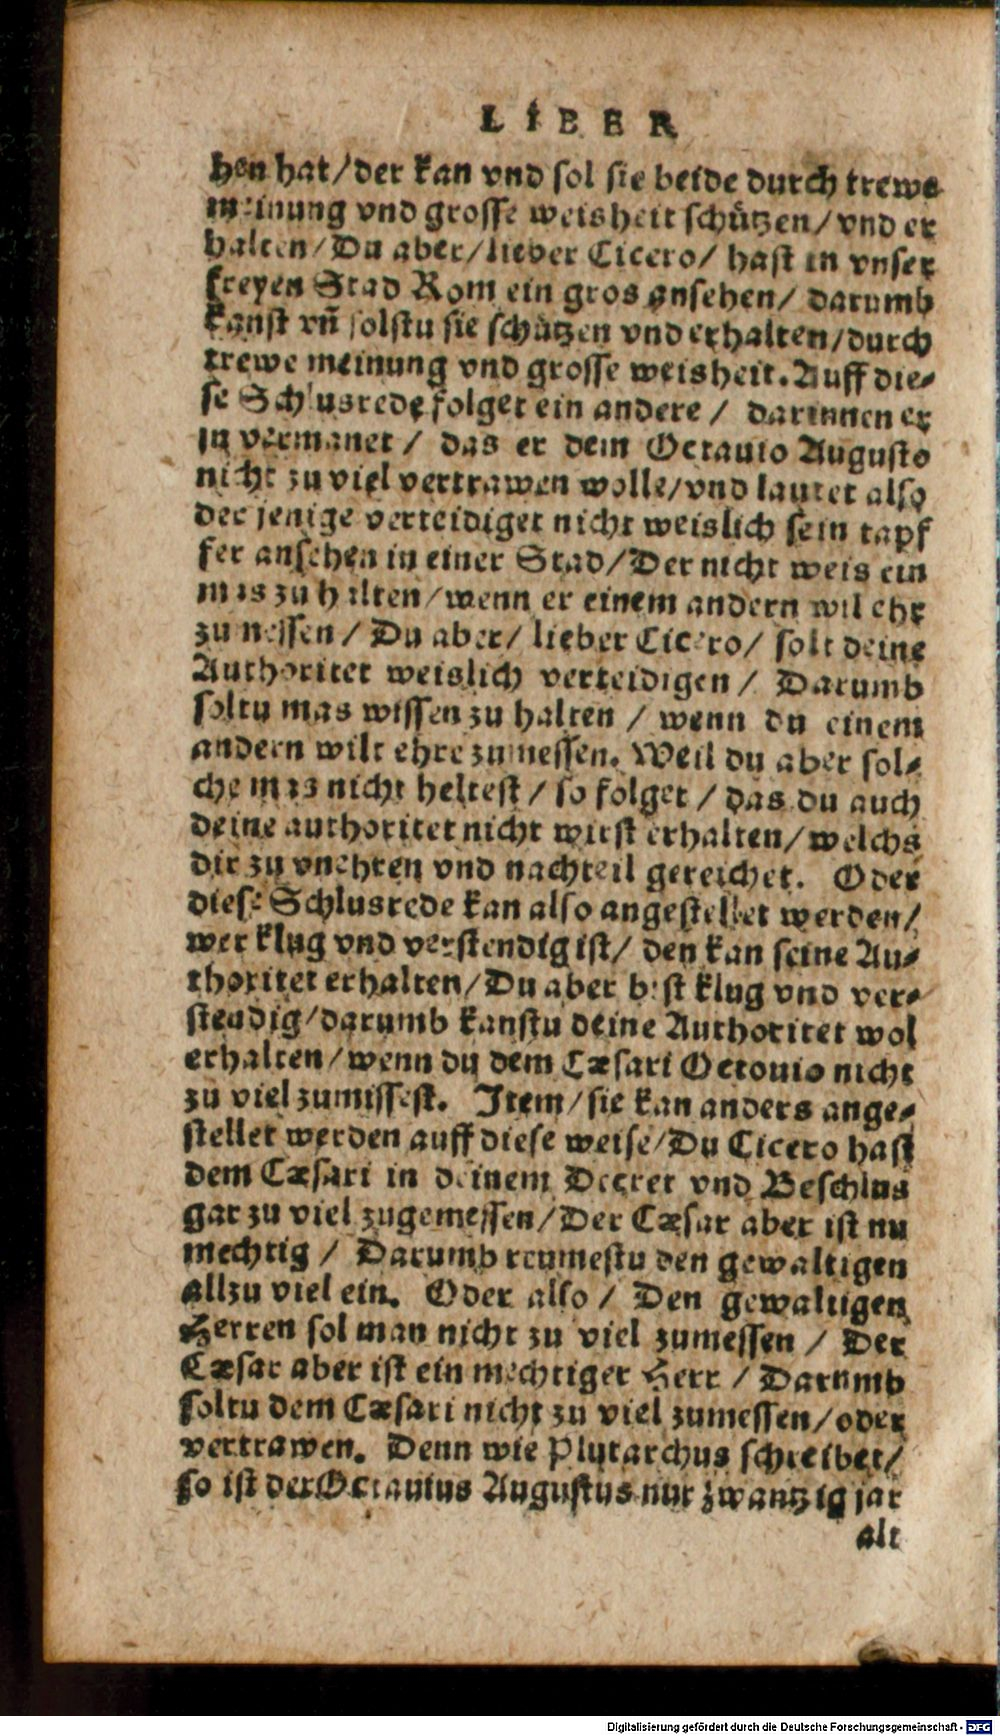 LIBER
hen hat/der kan vnd sol sie beide durch trewe
meinung vnd grosse weisheit schützen/vnd er
halten/Du aber/lieber Cicero/ hast in vnser
freyen Stad Rom ein gros ansehen/ darumb
kanst vñ solstu sie schützen vnd erhalten/durch
trewe meinung vnd grosse weisheit. Auff die-
se Schlusrede folget ein andere / darinnen er
jn vermanet / das er dem Octauio Augusto
nicht zu viel vertrawen wolle/vnd lautet also
der jenige verteidiget nicht weislich sein tapf
fer ansehen in einer Stad/Der nicht weis ein
mas zu halten/wenn er einem andern wil ehr
zumessen / Du aber/ lieber Cicero/ solt deine
Authoritet weislich verteidigen / Darumb
soltu mas wissen zu halten / wenn du einem
andern wilt ehre zumessen. Weil du aber sol-
che mas nicht heltest / so folget / das du auch
deine authoritet nicht wirst erhalten/welchs
dir zu vnehren vnd nachteil gereichet. Oder
diese Schlusrede kan also angestellet werden/
wer klug vnd verstendig ist/ den kan seine Au-
thoritet erhalten/Du aber bist klug vnd ver-
stendig/darumb kanstu deine Authoritet wol
erhalten/wenn du dem Cæsari Octouio nicht
zu viel zumissest. Item/sie kan anders ange-
stellet werden auff diese weise/Du Cicero hast
dem Cæsari in deinem Decret vnd Beschlus
gar zu viel zugemessen/Der Cæsar aber ist nu
mechtig / Darumb reumestu den gewaltigen
allzu viel ein. Oder also / Den gewaltigen
Herren sol man nicht zu viel zumessen / Der
Cæsar aber ist ein mechtiger Herr / Darumb
soltu dem Cæsari nicht zu viel zumessen/oder
vertrawen. Denn wie Plutarchus schreibet/
so ist der Octauius Augustus nur zwantzig jar
alt
Digitalisierung gefördert durch die Deutsche Forschungsgemeinschaft - DFG